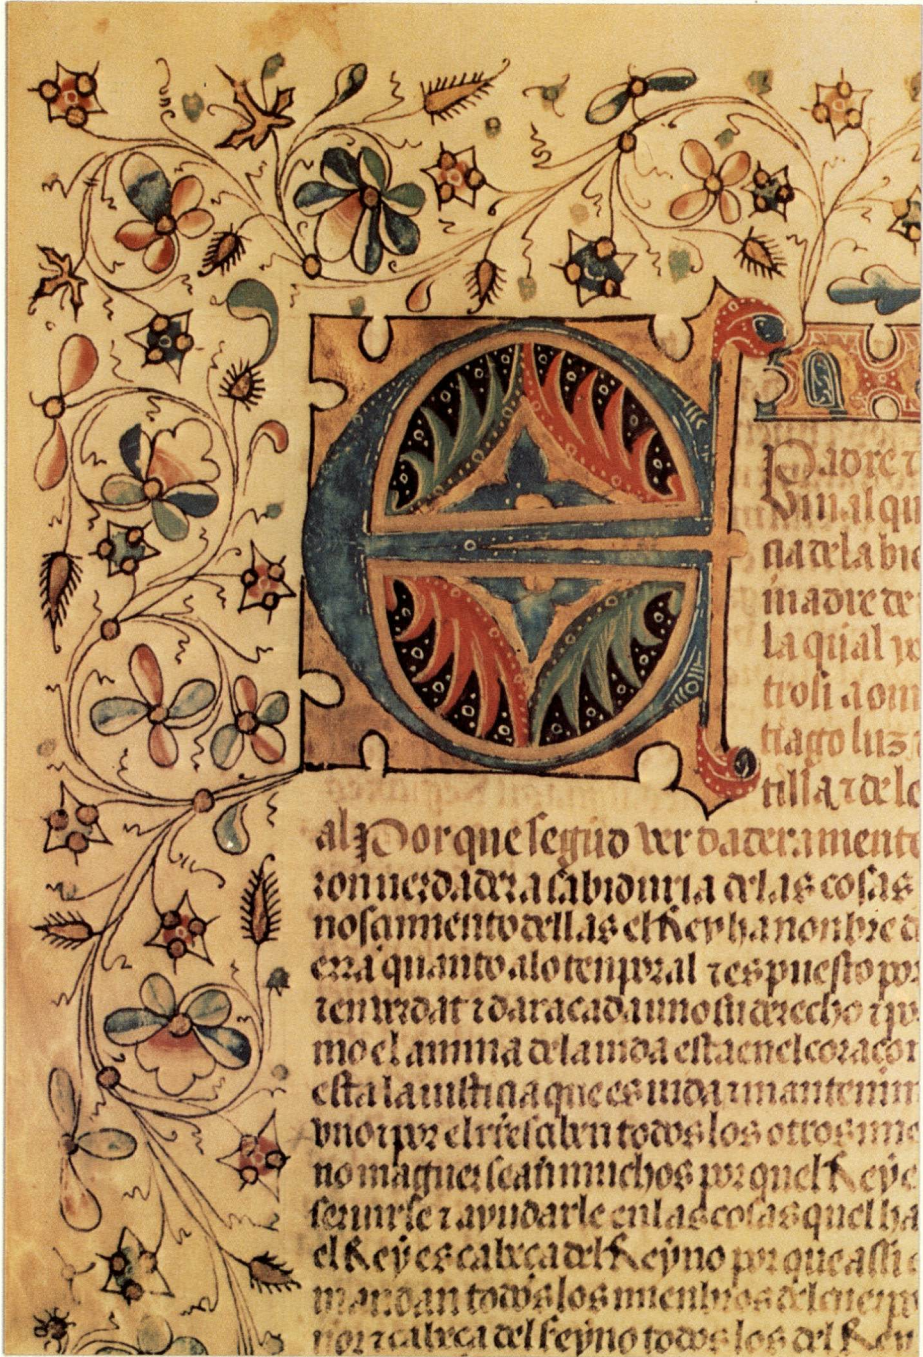 E N
Padre τ
na de la bi
madre de
la qual
trosi a om
tiago luz
tilla τ de lo
al Por que segũd verdadera mente
ron uerdadera sabiduria de las cosas
nosçimiento dellas el Rey ha nonbre d
erra quanto a lo tenporal τ es puesto por
ten uerdat τ dar a cada uno su derecho τ po
mo el anima de la uida esta en el coraçon
esta la iustiçia que es uida τ mantením
vno τ por el resçiben todos los otros mie
no maguer sean muchos por quel Rey e
seruirle τ ayudarle en las cosas quel ha
el Rey es cabeça del Reyno por que assi
mandan todos los mienbros del cuerpo
por τ cabeça del Reyno todos los del Rey